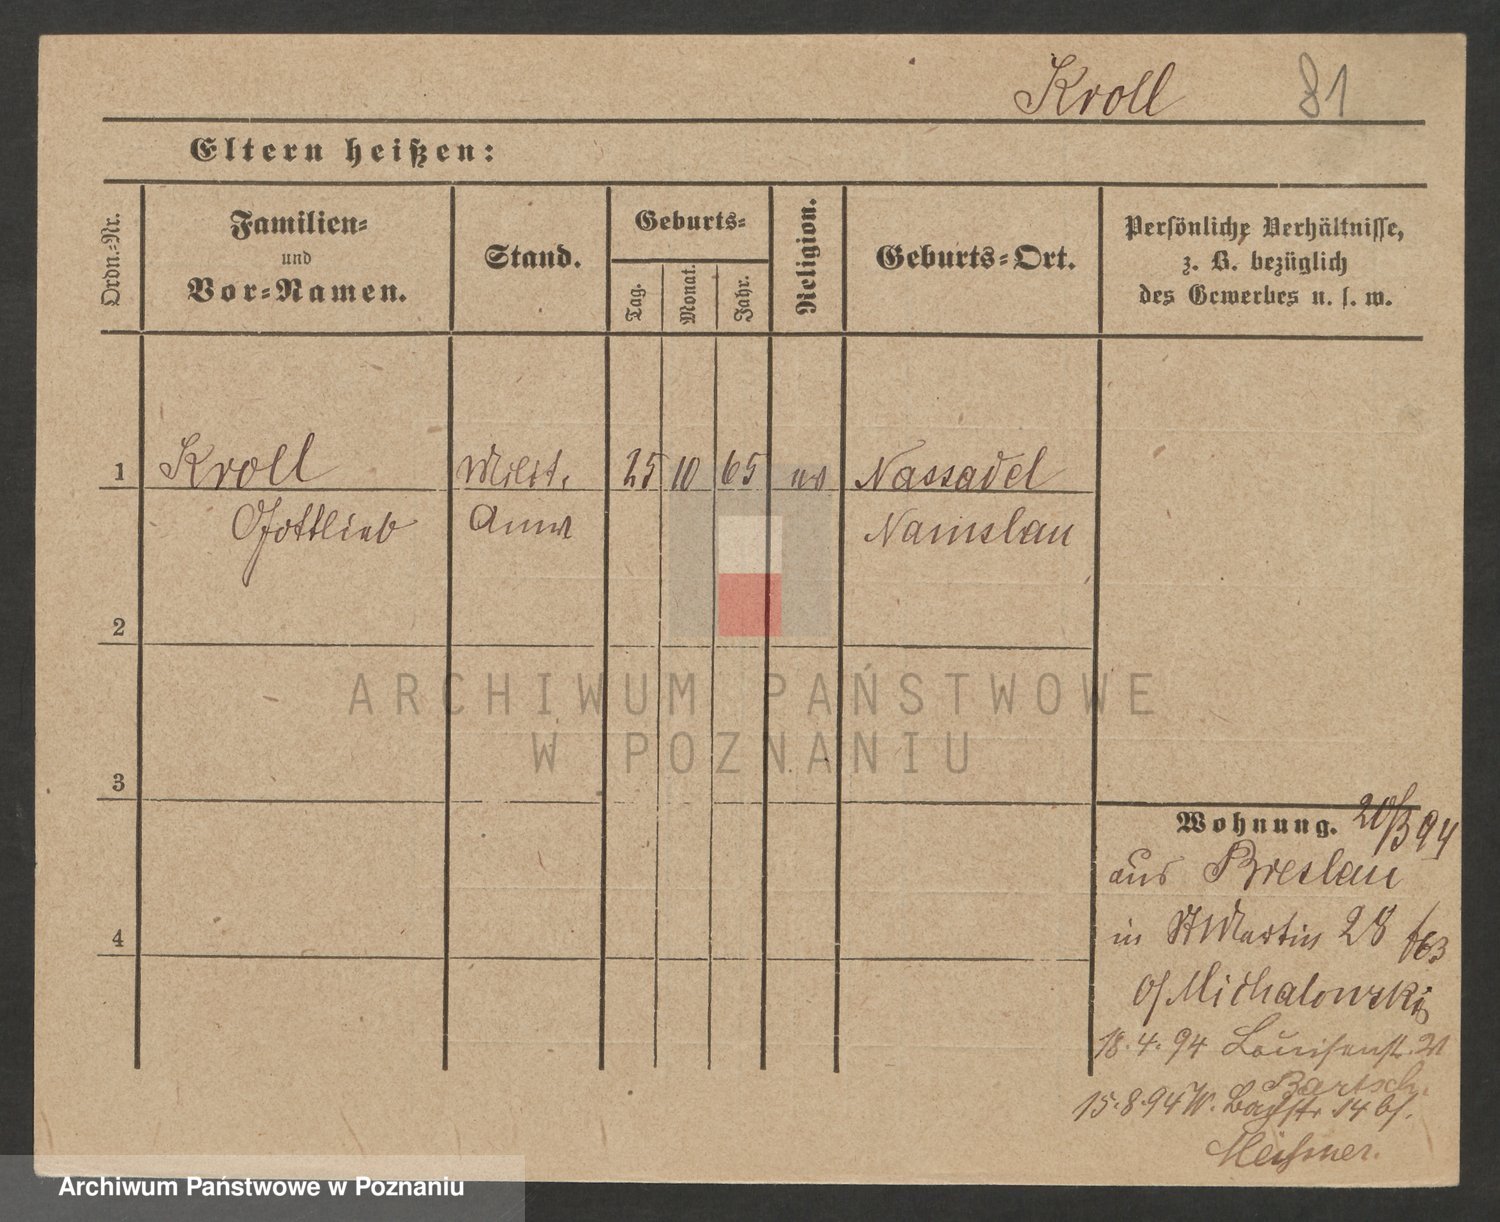 Kroll 81
Eltern heißen:
Ordn.-Nr.
Familien-
und
Vor-Namen.
Stand.
Geburts-
Tag.
Monat.
Jahr.
Religion.
Geburts-Ort.
Persönliche Verhältnisse,
z. B. bezüglich
des Gewerbes u. s. w.
1 Kroll Milit. 25 10 65 ev Nassadel
Gottlieb Anw Namslau
2
3
4
Wohnung. 20/3 94
aus Breslau
in St Martin 28
b/ Michalowski
18.4.94 Louisenst. 21
Bartsch.
15.8.94 W. 14 b/.
ARCHIWUM PAŃSTWOWE
W POZNANIU
Archiwum Państwowe w Poznaniu